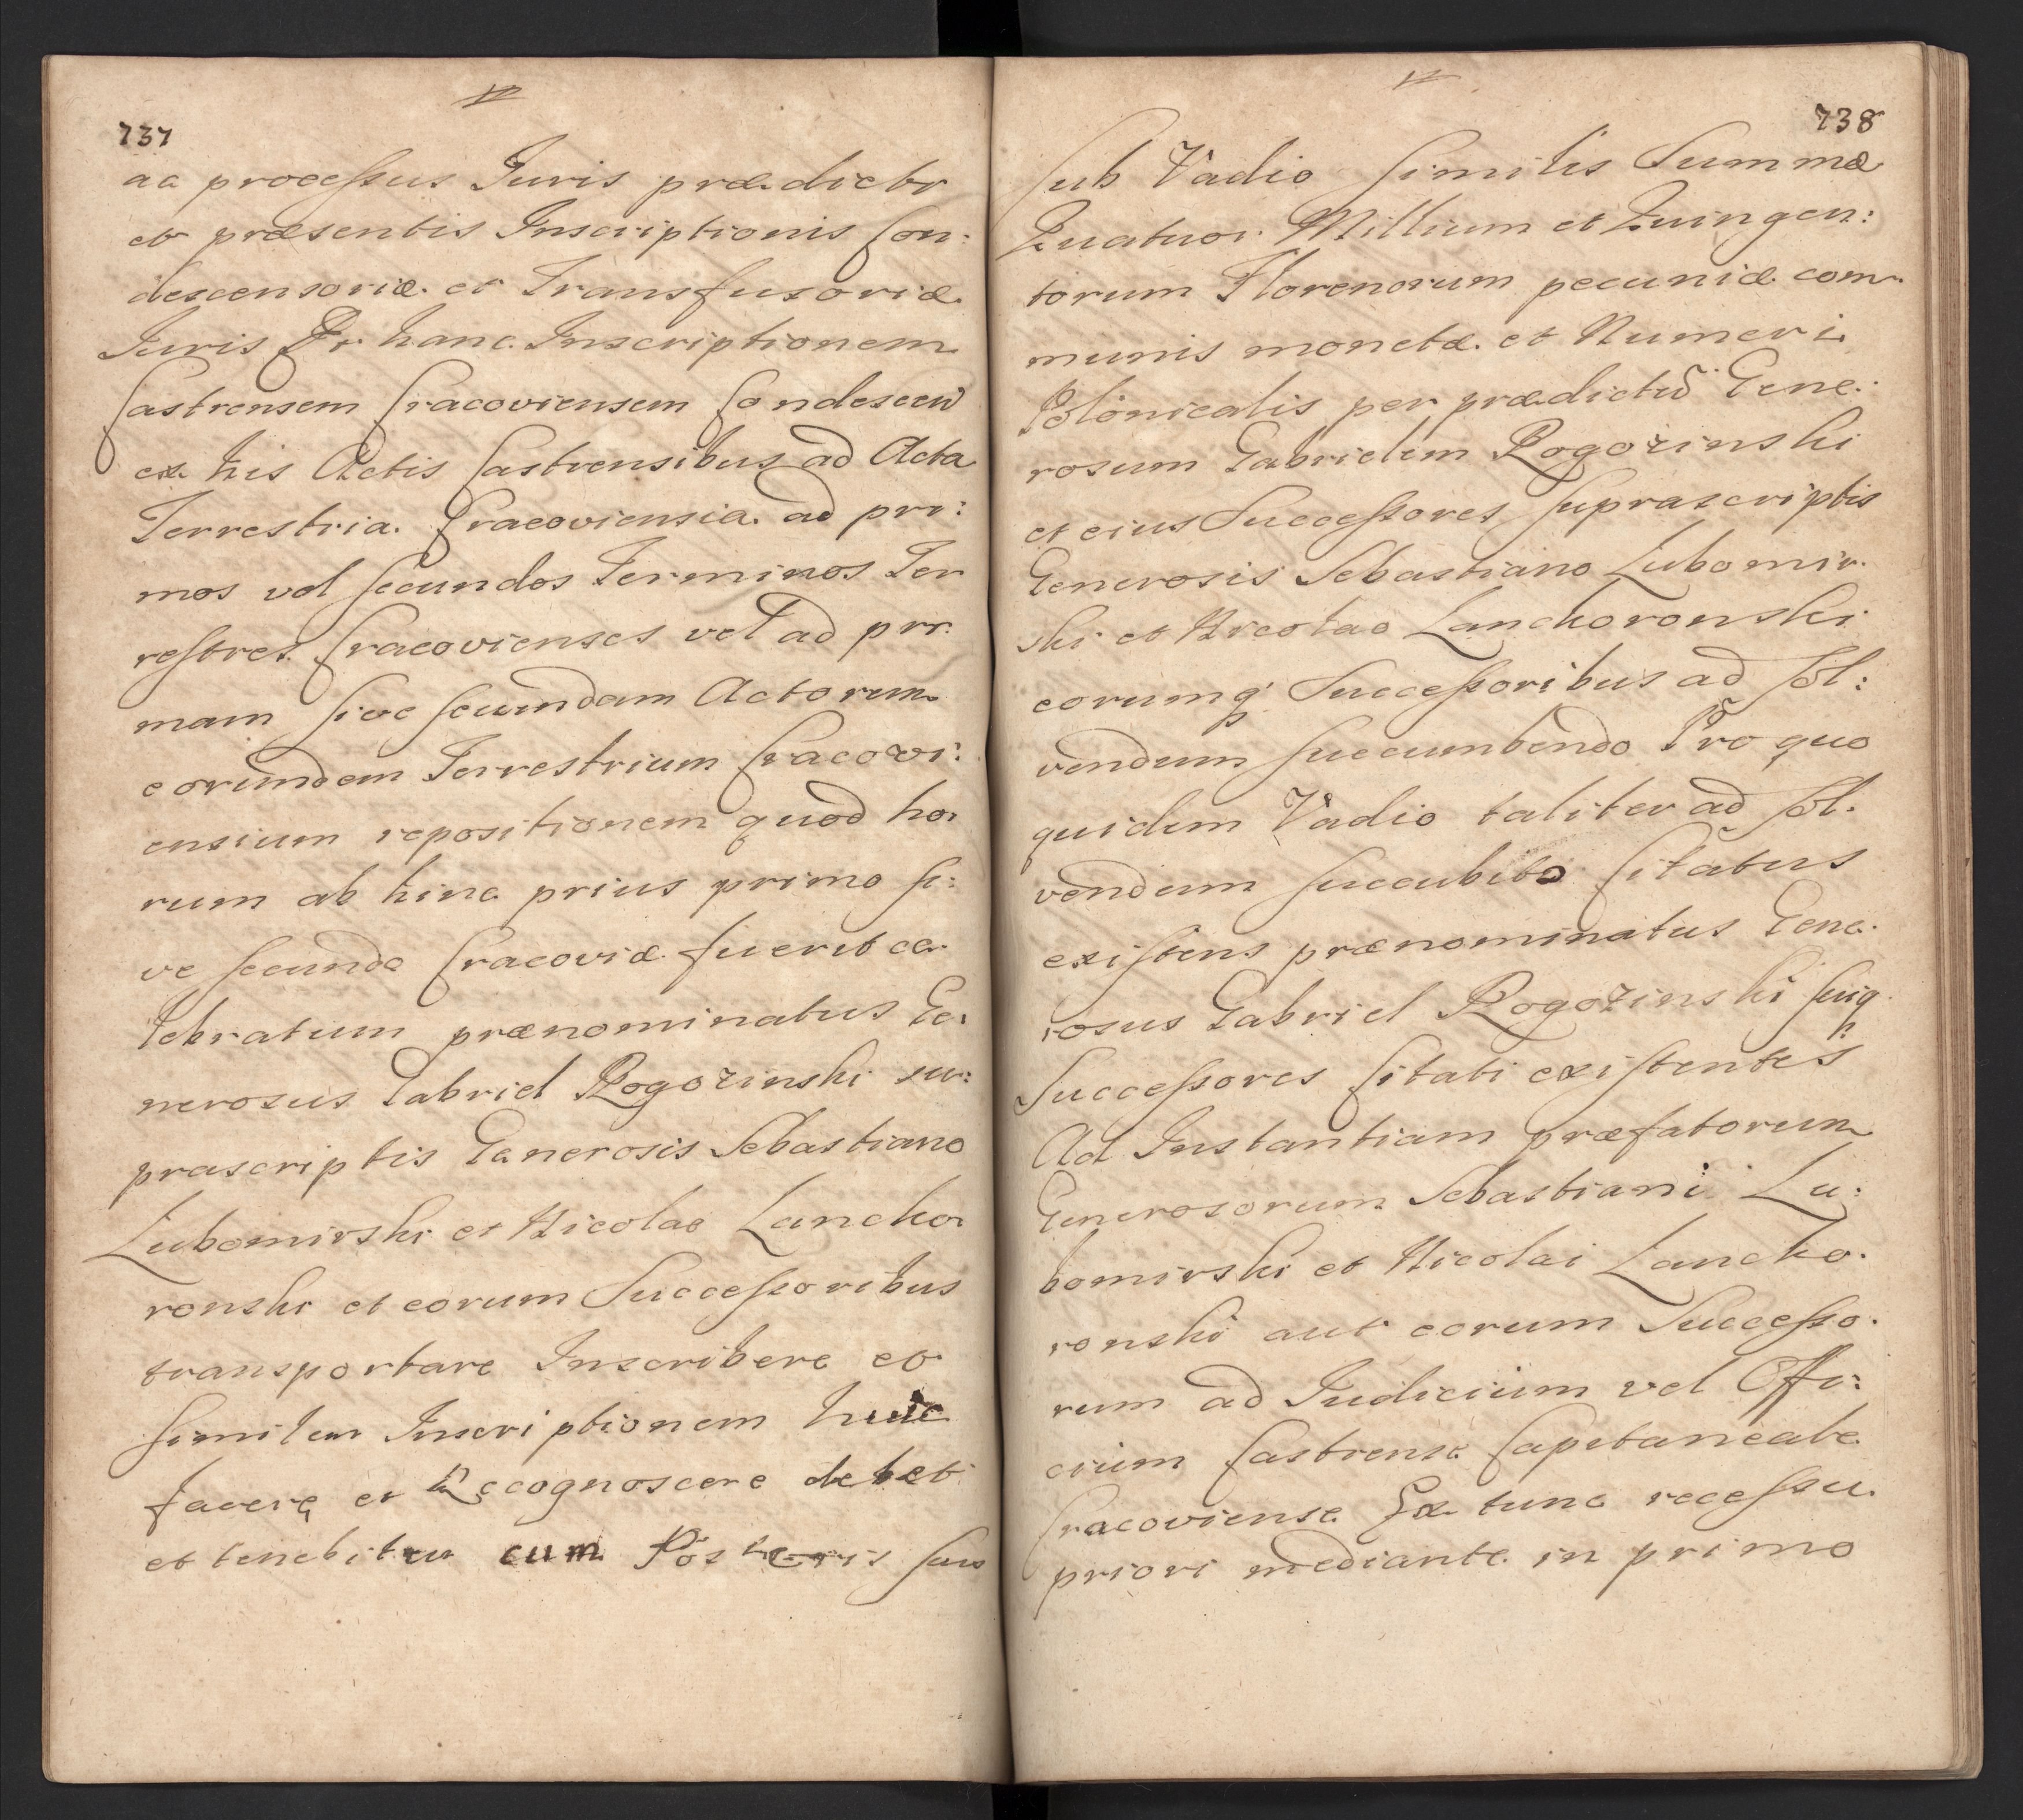 737
ac processus Juris prædicti
et præsentis Inscriptionis Con:
descensoriæ et Transfusoriæ
Juris Pr hanc Inscriptionem
Castrensem Cracoviensem Condescen
ex his Actis Castrensibus ad Acta
Terrestria Cracoviensia ad pri:
mos vel secundos Terminos Ter
restres Cracovienses vel ad pri
mam sive secundam Actorum
eorundem Terrestrium Cracovi:
ensium repositionem quod ho
rum ab hinc prius primo si:
ve secundo Cracoviæ fuerit ce
lebratum prænominatus Ge:
nerosus Gabriel Rogozinski su:
prascriptis Generosis Sebastiano
Lubomirski et Nicolao Lancko
ronski et eorum Successoribus
transportare Inscribere et
similem Inscriptionem huic
facere et Recognoscere debet
et tenebitur cum Posteris suis
738
sub Vadio similis Summæ
Quatuor Millium et Quingen:
torum Florenorum pecuniæ com
munis monetæ et Numeri
Polonicalis per prædictũ Gene:
rosum Gabrielem Rogozinski
et eius Successores suprascriptis
Generosis Sebastiano Lubomir
ski et Nicolao Lanckoronski
eorumq Successoribus ad sol:
vendum succumbendo Pro quo
quidem Vadio taliter ad sol.
vendum succubito Citatus
existens prænominatus Gene.
rosus Gabriel Rogozinski suiq
Successores Citati existentes
Ad Instantiam præfatorum
Generosorum Sebastiani Lu:
bomirski et Nicolai Lancko.
ronski aut eorum Successo.
rum ad Iudicium vel Offi:
cium Castrense Capitaneale
Cracoviense Ex tunc recessu
priori mediante in primo